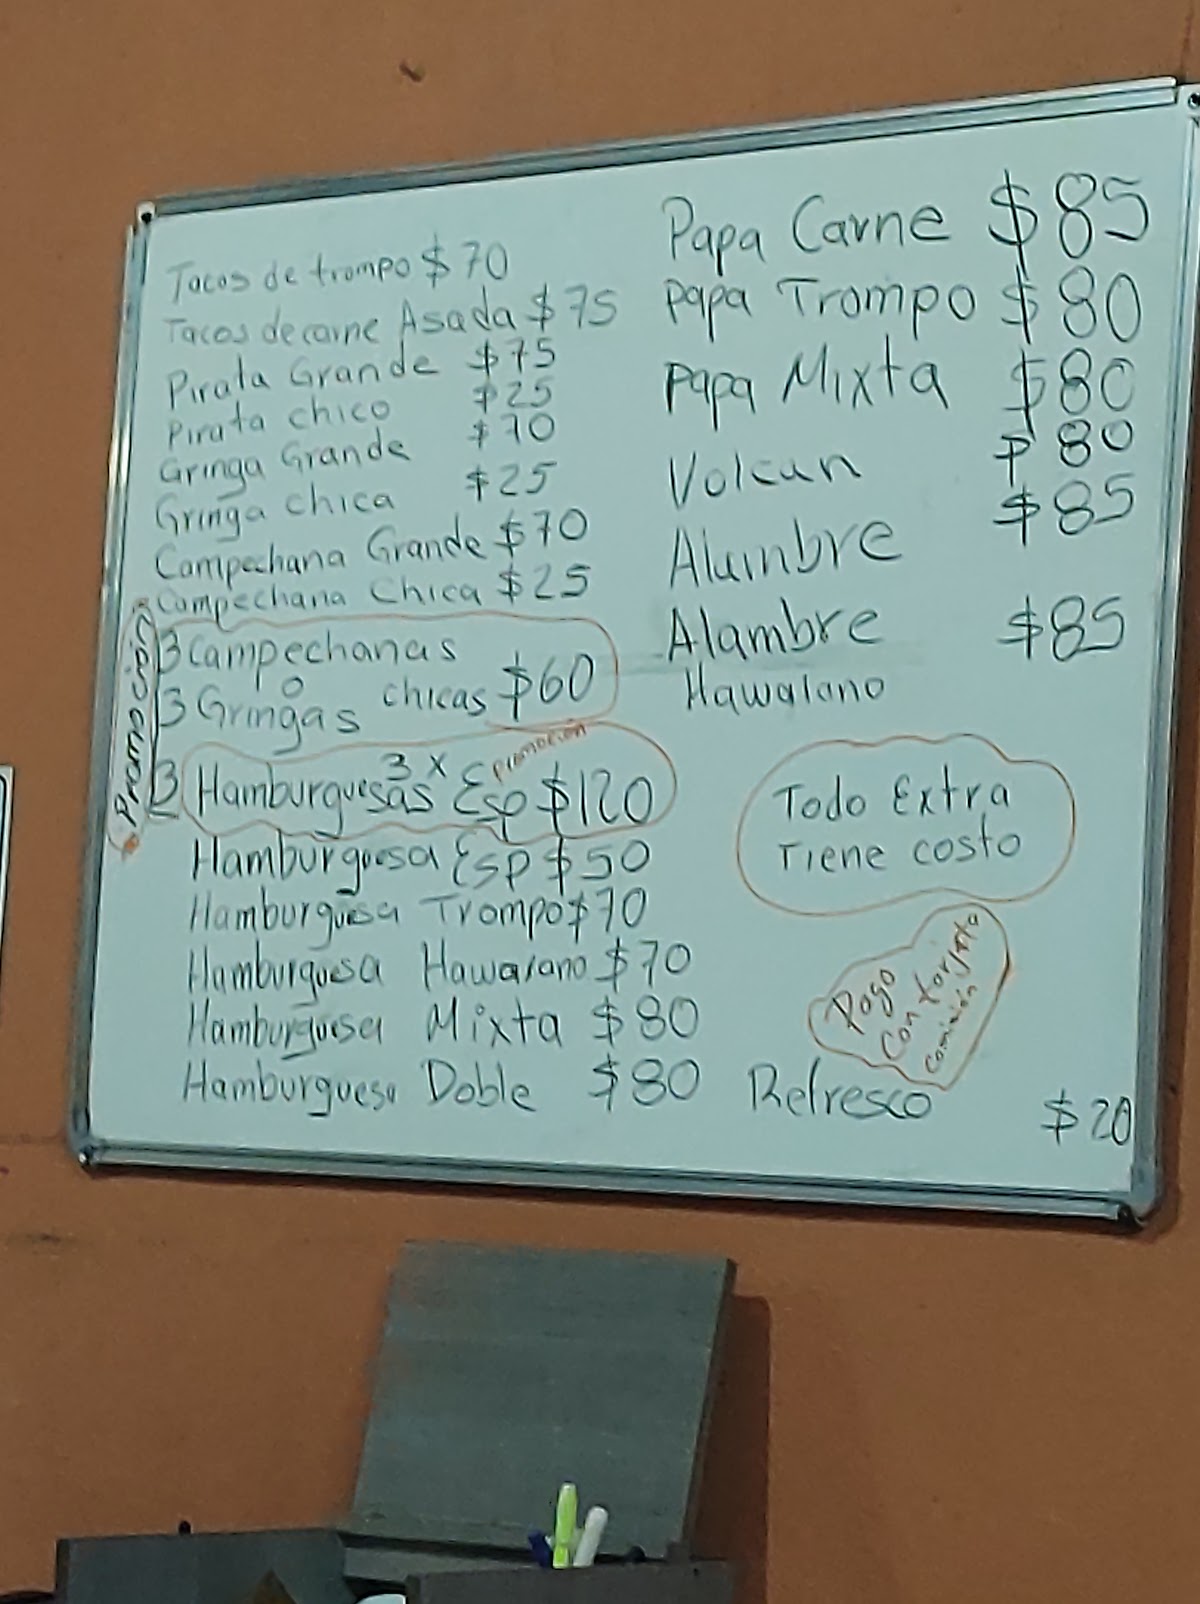 Tacos de trompo $70
Tacos de carne Asada $75
Pirata Grande $75
Pirata chico $25
Gringa Grande $70
Gringa chica $25
Campechana Grande $70
Campechana Chica $25
Promoción
3 Campechanas
o
3 Gringas chicas $60
promoción
3 Hamburguesas 3 x Esp $120
Hamburguesa Esp $50
Hamburguesa Trompo $70
Hamburguesa Hawaiano $70
Hamburguesa Mixta $80
Hamburguesa Doble $80
Papa Carne $85
Papa Trompo $80
Papa Mixta $80
Volcan $80
Alumbre $85
Alambre $85
Hawaiano
Todo Extra
Tiene costo
Pago
Con tarjeta
comisión
Refresco $20